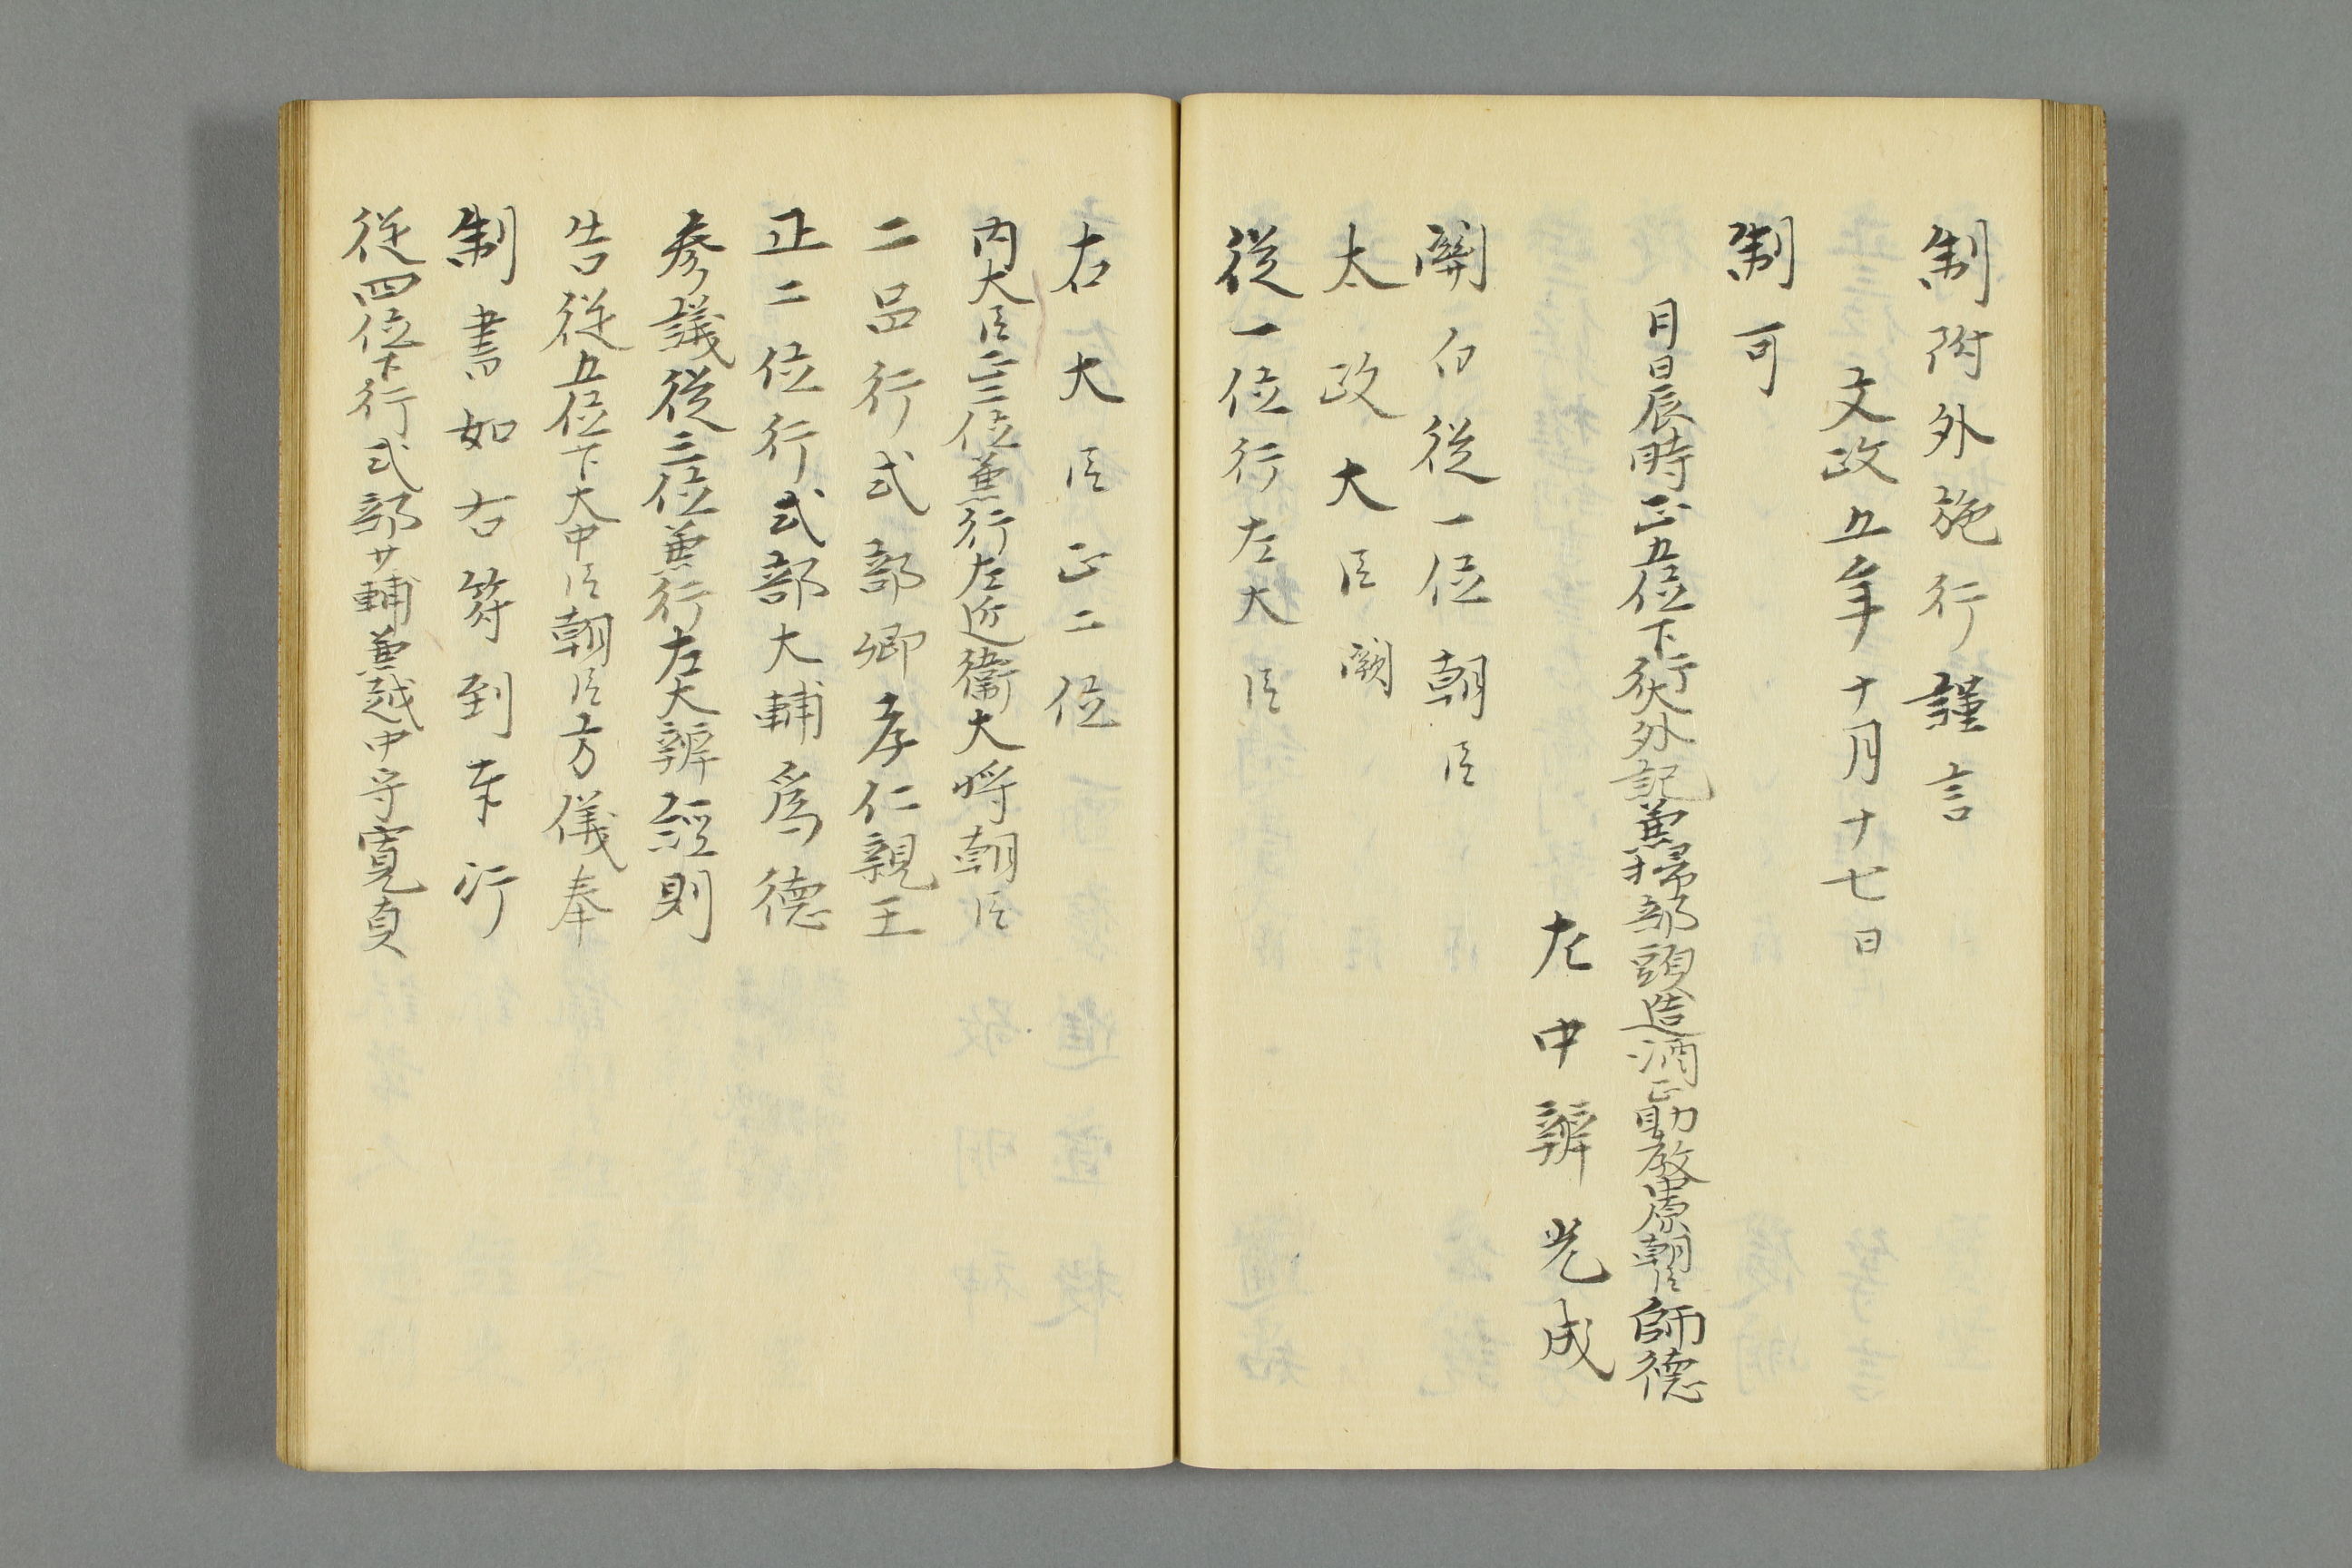 制附外施行謹言
文政五年十月十七日
制可
月日辰時正五位下行大外記兼掃部頭造酒正助教中原朝臣師德
左中辨光成
關白從一位朝臣
太政大臣闕
從一位行左大臣
右大臣正二位
内大臣正三位兼行左近衞大將朝臣
二品行式部卿孝仁親王
正二位行式部大輔爲德
参議從三位兼行左大辨經則
告從五位下大中臣朝臣方儀奉
制書如右符到奉行
從四位下行式部少輔兼越中守寛貞